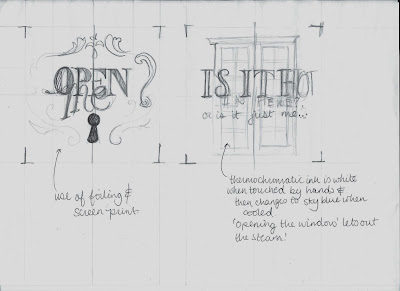 OPEN
?
IS IT HO
IN HERE?
or is it just me...
use of foiling &
screen-print
thermochromatic ink is white
when touched by hands &
then changes to sky blue when
cooled.
'opening the window' lets out
the steam.'